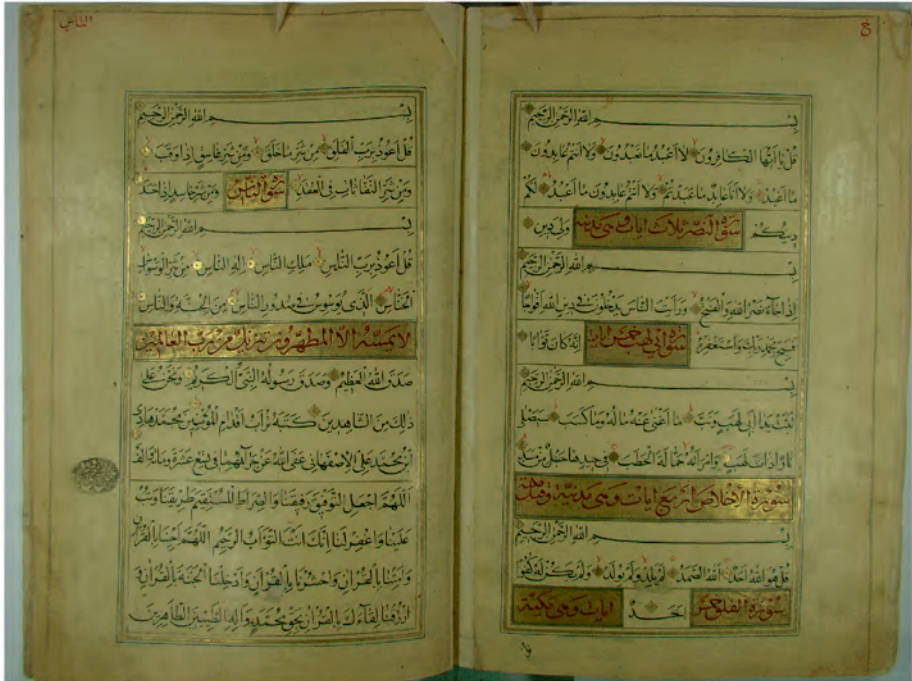 ج
بسم الله الرحمن الرحيم
قل يا ايها الكافرون لا اعبد ما تعبدون ولا انتم عابدون
ما اعبد ولا انا عابد ما عبدتم ولا انتم عابدون ما اعبد لكم
دينكم سورة النصر ثلاث ايات وهي مدنية ولي دين
بسم الله الرحمن الرحيم
اذا جاء نصر الله والفتح ورأيت الناس يدخلون في دين الله افواجا
فسبح بحمد ربك واستغفره سورة ابي لهب خمس ايات انه كان توابا
بسم الله الرحمن الرحيم
تبت يدا ابي لهب وتب ما اغنى عنه ماله وما كسب سيصلى
نارا ذات لهب وامرأته حمالة الحطب في جيدها حبل من مسد
سورة الاخلاص اربع ايات وهي مدنية
بسم الله الرحمن الرحيم
قل هو الله احد الله الصمد لم يلد ولم يولد ولم يكن له كفوا
سورة الفلق خمس احد ايات وهي مكية
الناس
بسم الله الرحمن الرحيم
قل اعوذ برب الفلق من شر ما خلق ومن شر غاسق اذا وقب
ومن شر النفاثات في العقد سورة الناس ومن شر حاسد اذا حسد
بسم الله الرحمن الرحيم
قل اعوذ برب الناس ملك الناس اله الناس من شر الوسواس
الخناس الذي يوسوس في صدور الناس من الجنة والناس
لا يمسه الا المطهرون تنزيل من رب العالمين
صدق الله العظيم وصدق رسوله النبي الكريم ونحن على
ذلك من الشاهدين كتبه تراب اقدام المؤمنين محمد هادي
ابن محمد علي الاصفهاني عفى الله عن جرائمهما في تسع عشرة ومائة الف
اللهم اجعل التوفيق رفيقنا والصراط المستقيم طريقنا وتب
علينا واغفر لنا انك انت التواب الرحيم اللهم احينا بالقران
وامتنا بالقران واحشرنا بالقران وادخلنا الجنة بالقران و
ارزقنا لقاءك بالقران بحق محمد واله الطيبين الطاهرين